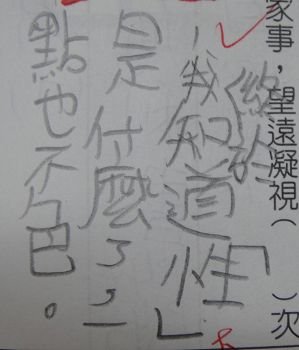 家事，望遠凝視（　）次
終於
，我知道「性」
是什麼了，一
點也不色。